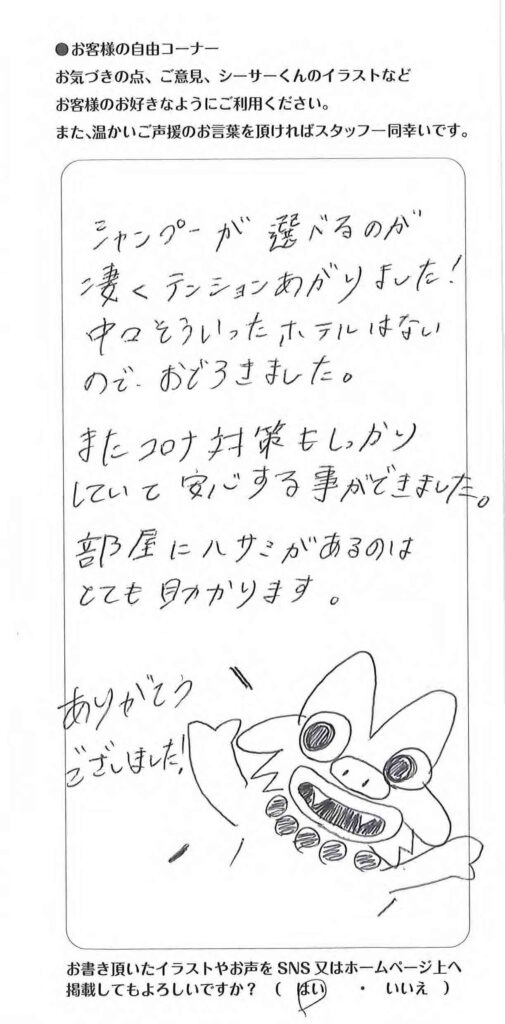 ●お客様の自由コーナー
お気づきの点、ご意見、シーサーくんのイラストなど
お客様のお好きなようにご利用ください。
また、温かいご声援のお言葉を頂ければスタッフ一同幸いです。
シャンプーが選べるのが
凄くテンションあがりました!
中々そういったホテルはない
ので、おどろきました。
またコロナ対策もしっかり
していて安心する事ができました。
部屋にハサミがあるのは
とても助かります。
ありがとう
ございました!
お書き頂いたイラストやお声をSNS又はホームページ上へ
掲載してもよろしいですか? ( はい ・ いいえ )